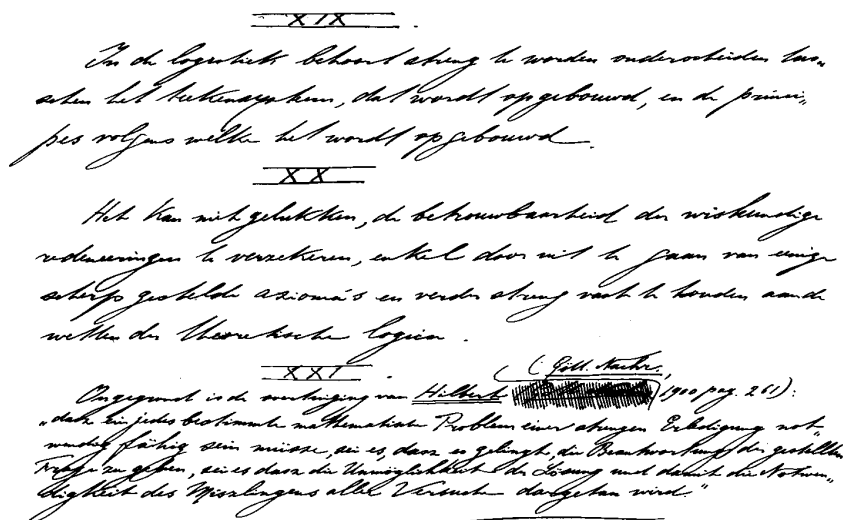 XIX.
In de logistiek behoort streng te worden onderscheiden tus„
schen het teekensysteem, dat wordt opgebouwd, en de princi„
pes volgens welke het wordt opgebouwd.
XX
Het kan niet gelukken, de betrouwbaarheid der wiskundige
redeneeringen te verzekeren, enkel door uit te gaan van eenige
scherp gestelde axioma's en verder streng vast te houden aan de
wetten der theoretische logica.
XXI.
(Gött. Nachr.,
Ongegrond is de overtuiging van Hilbert 1900 pag. 261):
„dasz ein jedes bestimmte mathematische Problem einer strengen Erledigung not„
wendig fähig sein müsse, sei es, dasz es gelingt, die Beantwortung der gestellten
Frage zu geben, sei es dasz die Unmöglichkeit der Lösung und damit die Notwen„
digkeit des Miszlingens aller Versuche dargetan wird."